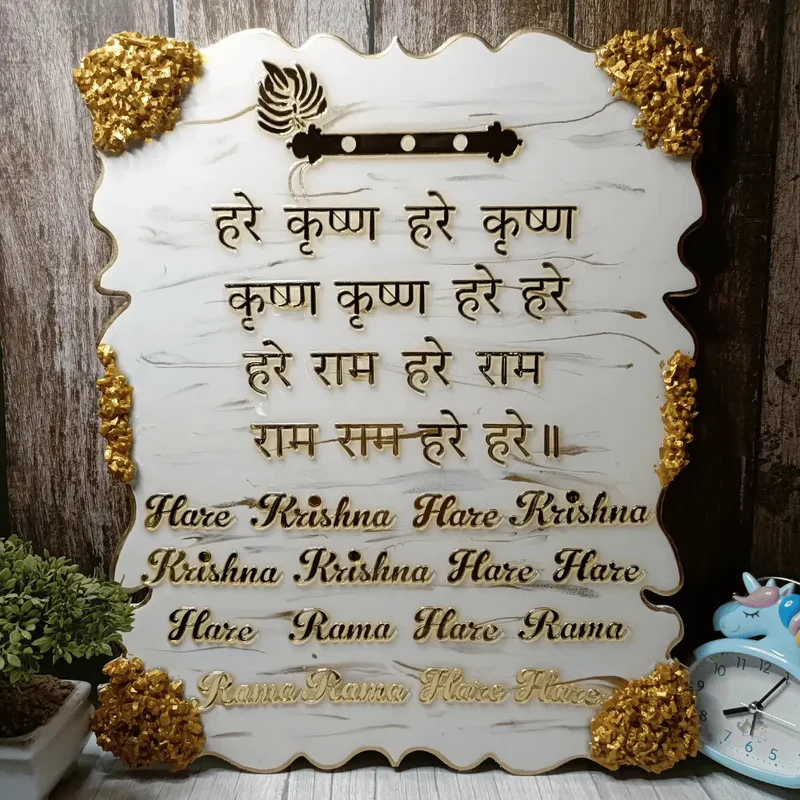 हरे कृष्ण हरे कृष्ण
कृष्ण कृष्ण हरे हरे
हरे राम हरे राम
राम राम हरे हरे॥
Hare Krishna Hare Krishna
Krishna Krishna Hare Hare
Hare Rama Hare Rama
Rama Rama Hare Hare
10 11 12 1
9
8
7 6 5